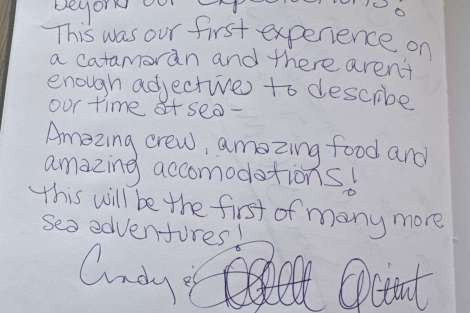 beyond our expectations!
This was our first experience on
a catamaran and there aren't
enough adjectives to describe
our time at sea -
Amazing crew, amazing food and
amazing accomodations!
This will be the first of many more
sea adventures!
Cindy &